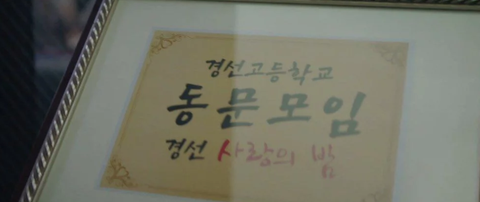 경선고등학교
동문모임
경선 사랑의 밤